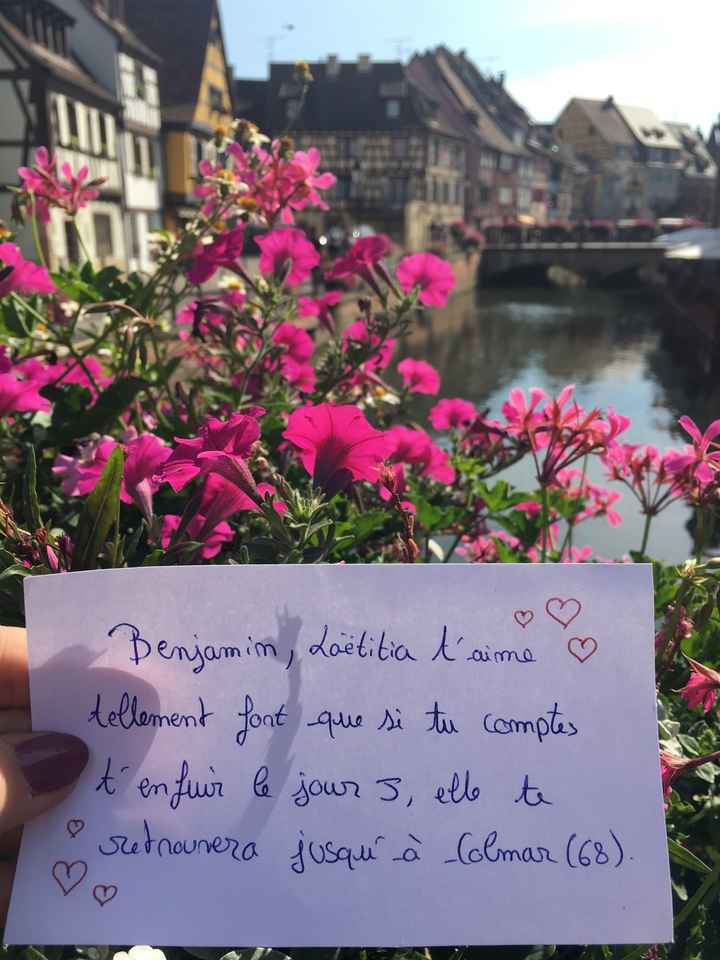 Benjamin, Laëtitia t'aime
tellement fort que si tu comptes
t'enfuir le jour J, elle te
retrouvera jusqu'à Colmar (68).